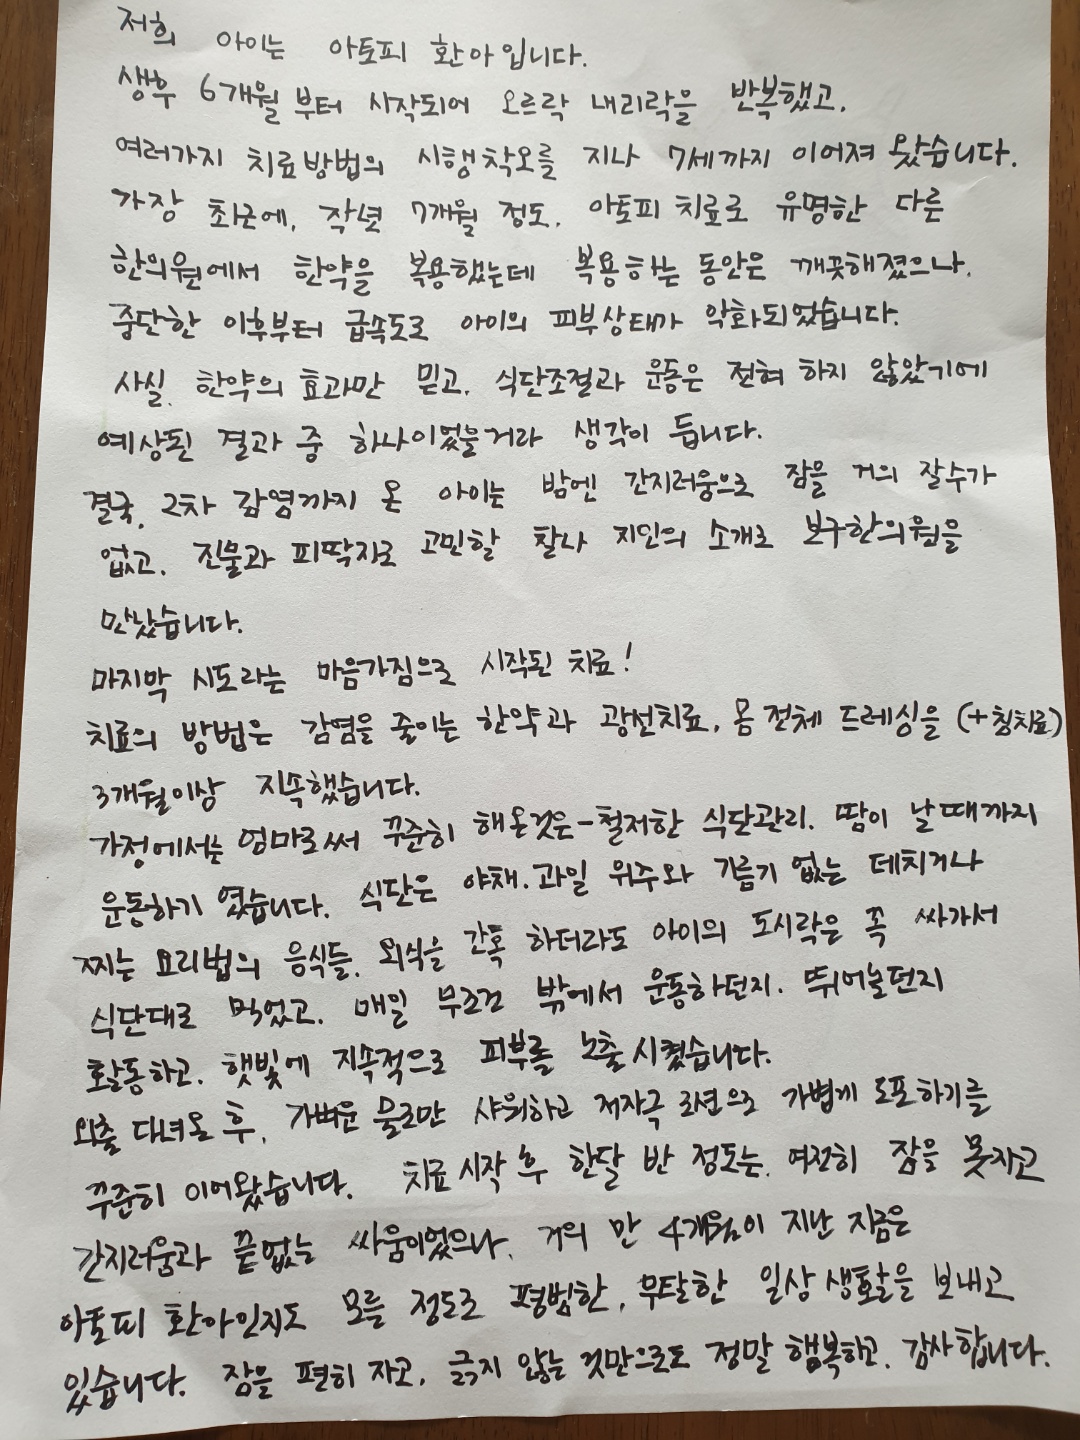 저희 아이는 아토피 환아입니다.
생후 6개월부터 시작되어 오르락 내리락을 반복했고,
여러가지 치료방법의 시행착오를 지나 7세까지 이어져 왔습니다.
가장 최근에, 작년 7개월 정도, 아토피 치료로 유명한 다른
한의원에서 한약을 복용했는데 복용하는 동안은 깨끗해졌으나,
중단한 이후부터 급속도로 아이의 피부상태가 악화되었습니다.
사실, 한약의 효과만 믿고, 식단조절과 운동은 전혀 하지 않았기에
예상된 결과 중 하나이었을거라 생각이 듭니다.
결국, 2차 감염까지 온 아이는 밤엔 간지러움으로 잠을 거의 잘수가
없고, 진물과 피딱지로 고민할 찰나 지인의 소개로 보구한의원을
만났습니다.
마지막 시도라는 마음가짐으로 시작된 치료!
치료의 방법은 감염을 줄이는 한약과 광선치료, 몸 전체 드레싱을 (+침치료)
3개월이상 지속했습니다.
가정에서는 엄마로써 꾸준히 해온것은 - 철저한 식단관리, 땀이 날때까지
운동하기 였습니다. 식단은 야채, 과일 위주와 기름기 없는 데치거나
찌는 요리법의 음식들, 외식을 간혹 하더라도 아이의 도시락은 꼭 싸가서
식단대로 먹었고, 매일 무조건 밖에서 운동하던지, 뛰어놀던지
활동하고, 햇빛에 지속적으로 피부를 노출시켰습니다.
외출 다녀온 후, 가벼운 물로만 샤워하고 저자극 로션으로 가볍게 도포하기를
꾸준히 이어왔습니다. 치료 시작 후 한달 반 정도는, 여전히 잠을 못자고
간지러움과 끝없는 싸움이었으나, 거의 만 4개월이 지난 지금은
아토피 환아인지도 모를 정도로 평범한, 무탈한 일상 생활을 보내고
있습니다. 잠을 편히 자고, 긁지 않는 것만으로도 정말 행복하고, 감사합니다.